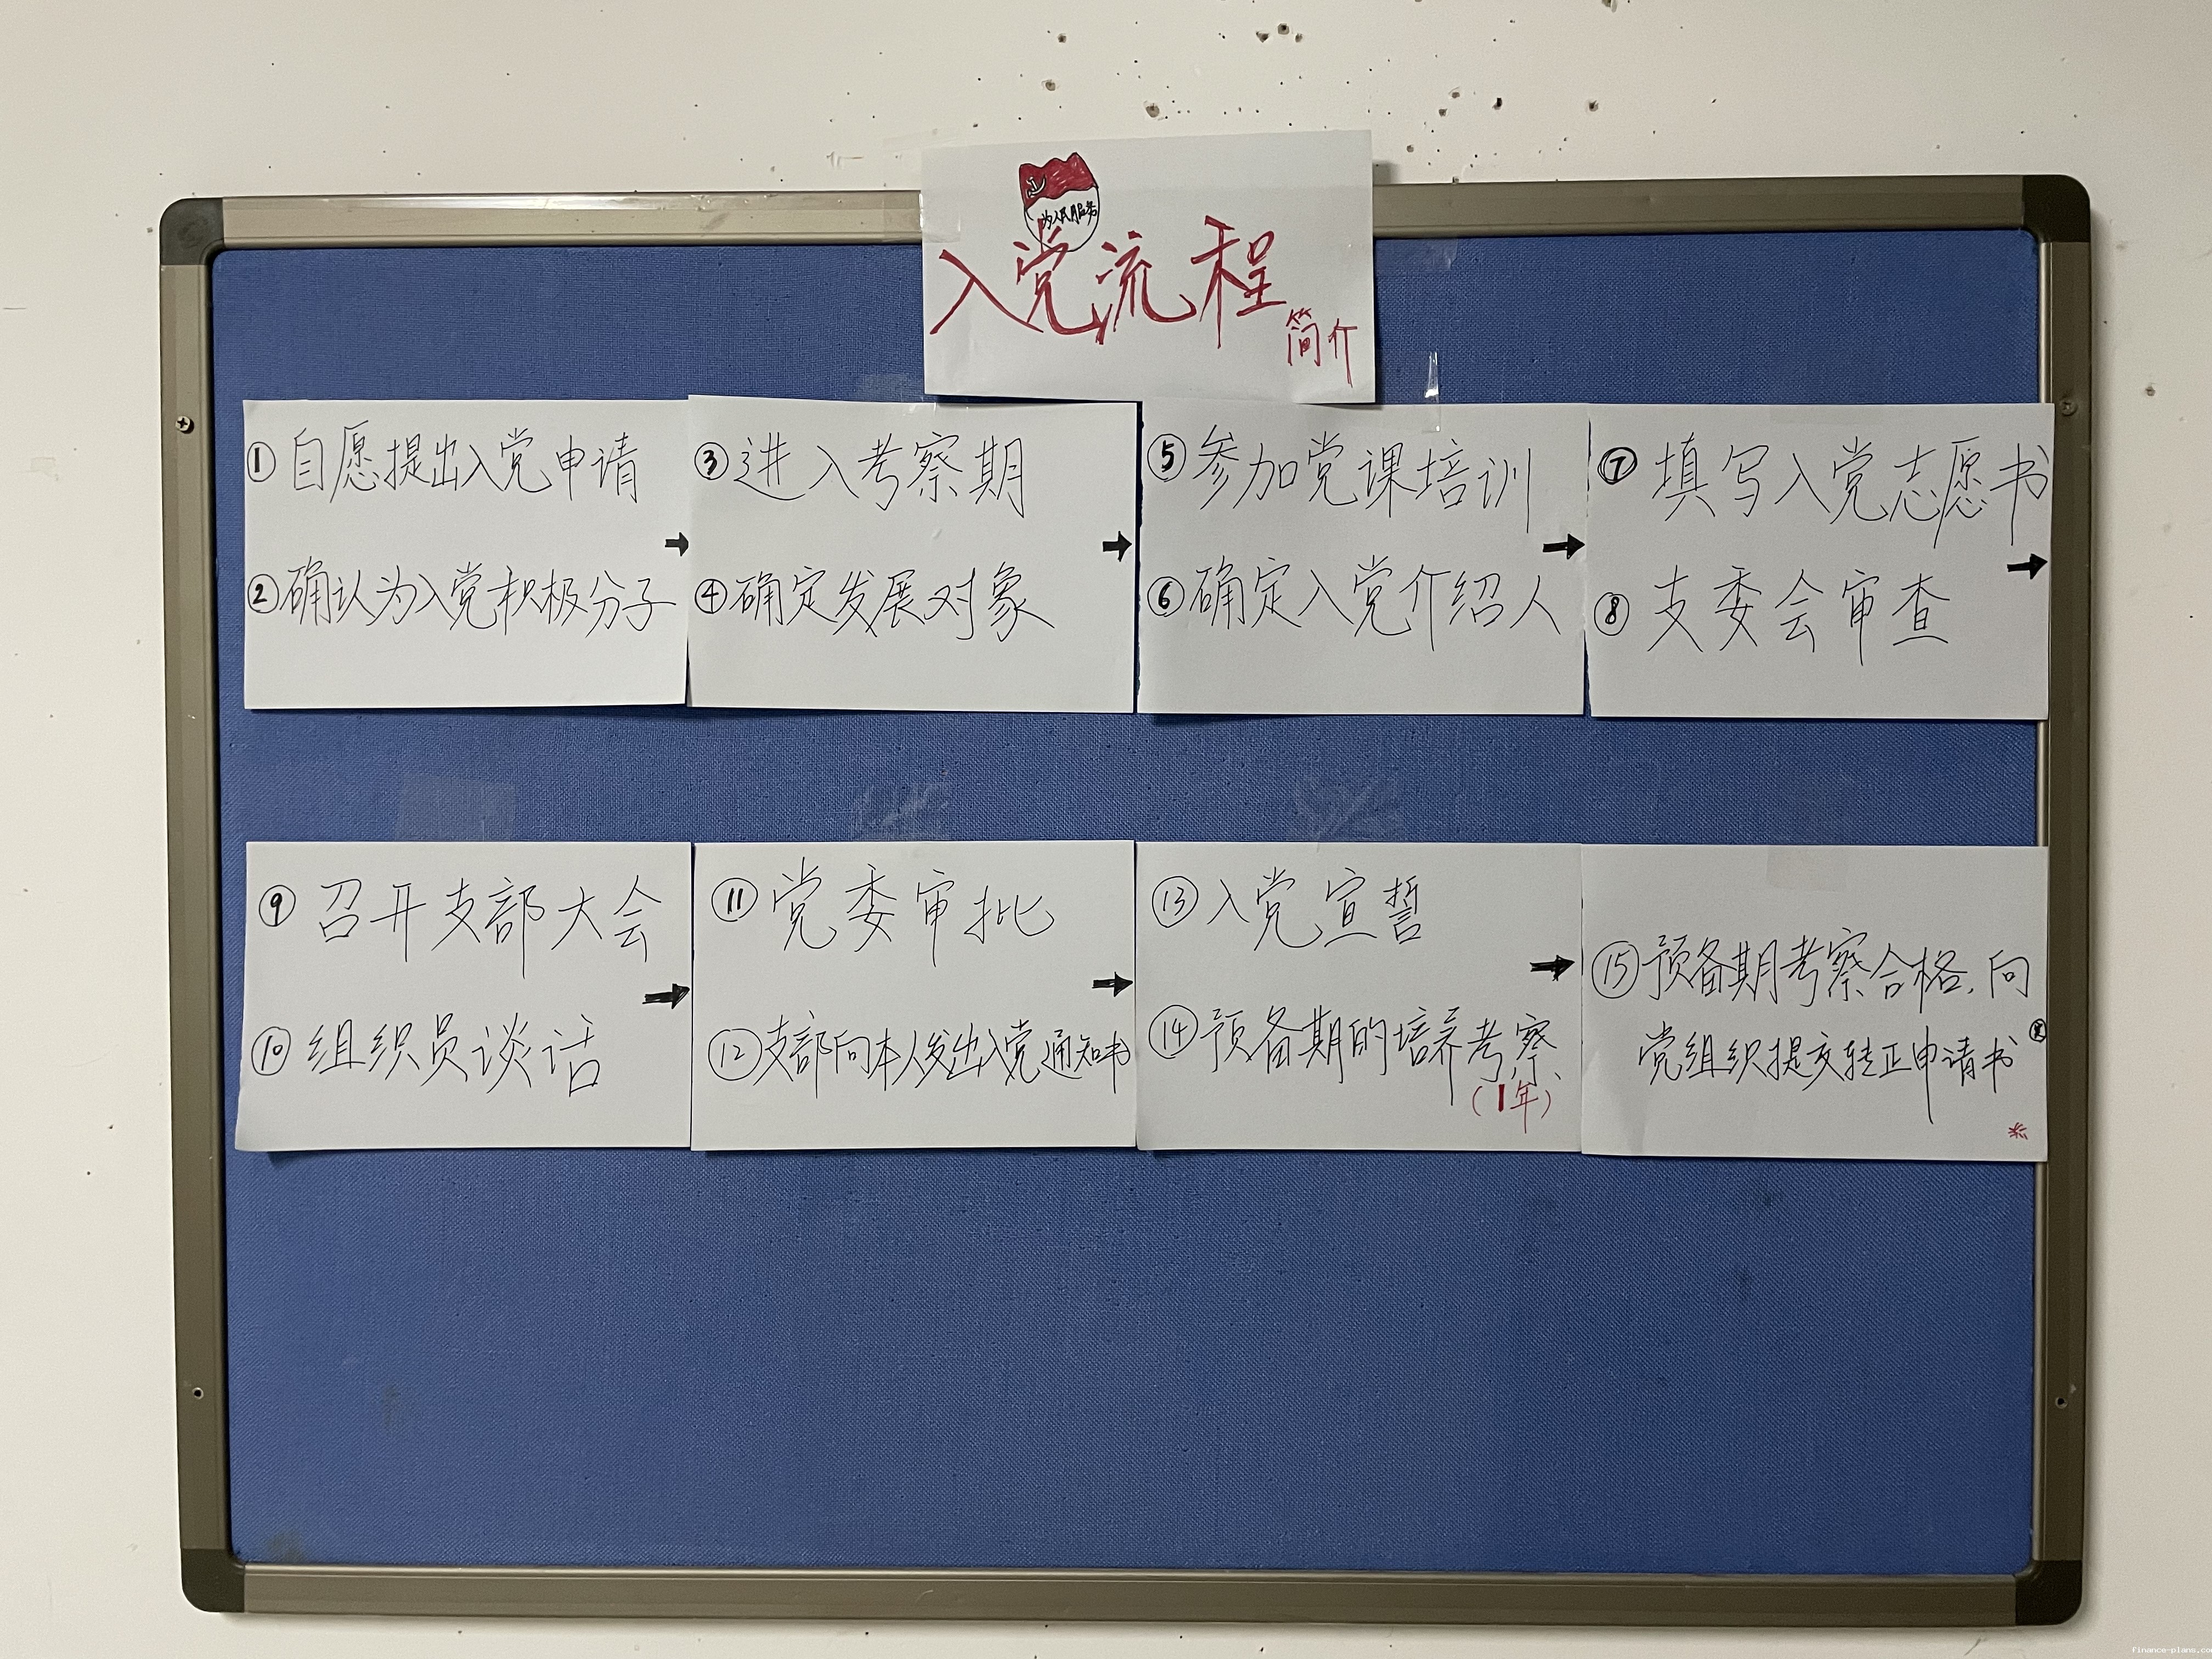 为人民服务
入党流程
简介
①自愿提出入党申请
②确认为入党积极分子
③进入考察期
④确定发展对象
⑤参加党课培训
⑥确定入党介绍人
⑦填写入党志愿书
⑧支委会审查
⑨召开支部大会
⑩组织员谈话
⑪党委审批
⑫支部向本人发出入党通知书
⑬入党宣誓
⑭预备期的培养考察
(1年)
⑮预备期考察合格,向
党组织提交转正申请书
finance-plans.com